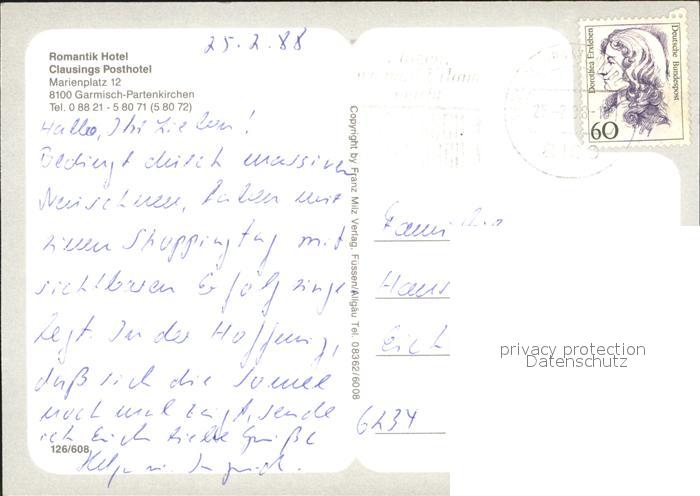 25.2.88
Romantik Hotel
Clausings Posthotel
Marienplatz 12
8100 Garmisch-Partenkirchen
Tel. 0 88 21 - 5 80 71 (5 80 72)
Hallo, Ihr Lieben!
Bedingt durch massiven
Neuschnee, haben wir
einen Shoppingtag mit
sichtbaren Erfolg einge
legt. In der Hoffnung,
daß sich die Sonne
noch mal zeigt, sende
ich Euch liebe Grüße
Helga
126/608
Copyright by Franz Milz Verlag, Füssen/Allgäu Tel. 08362/6008
Dorothea Erxleben
Deutsche Bundespost
60
Familie
Hans
Eich
6234
privacy protection
Datenschutz